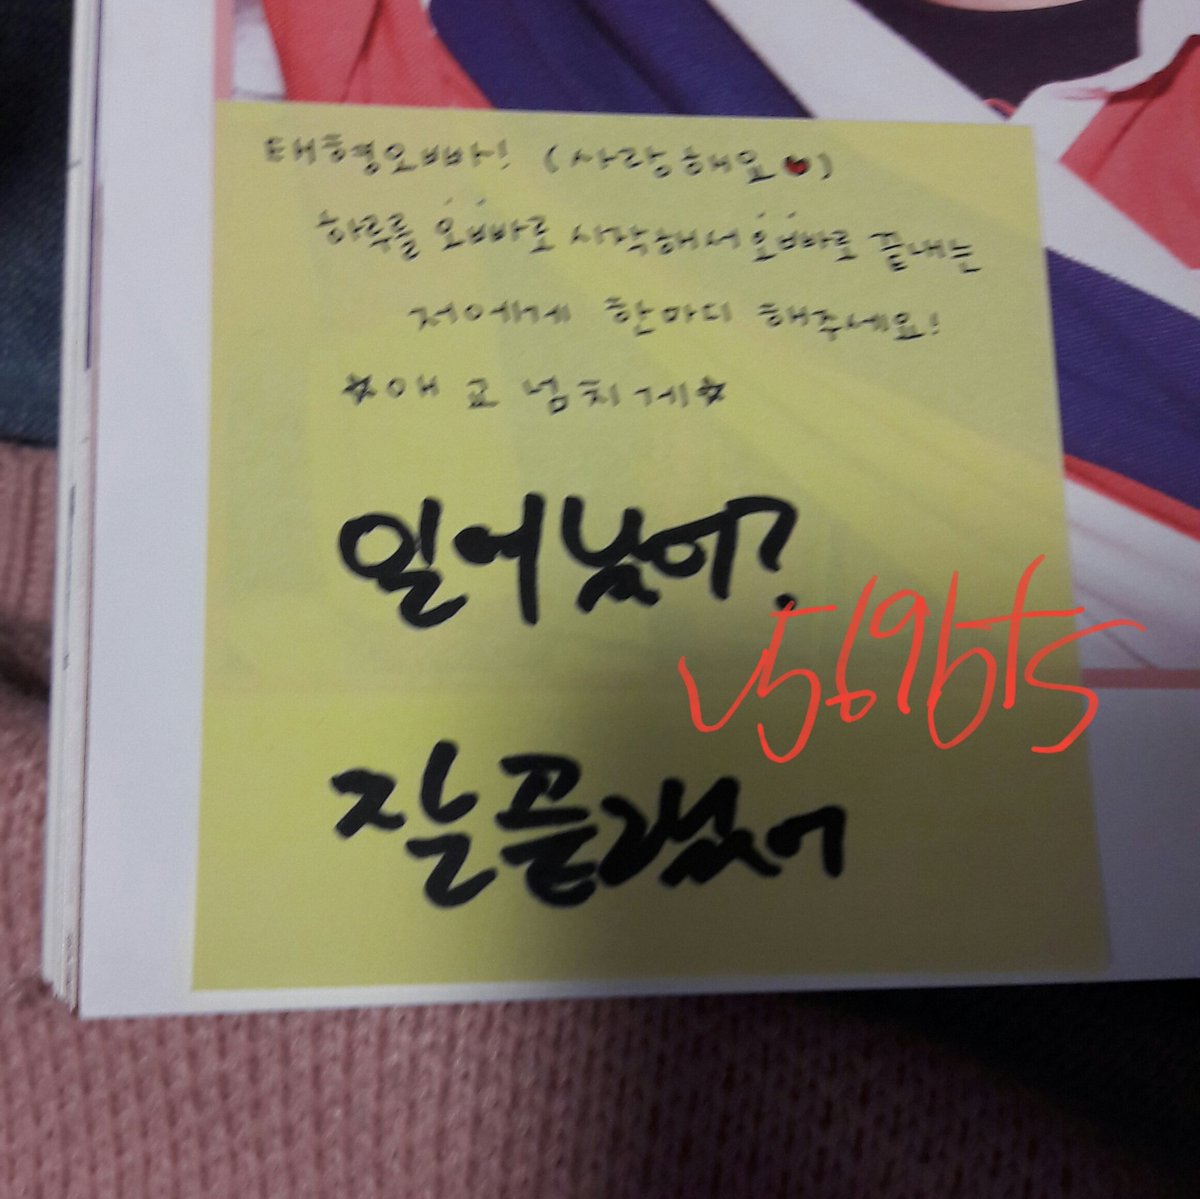 태형오빠! (사랑해요♥)
하루를 오빠로 시작해서 오빠로 끝내는
저에게 한마디 해주세요!
☆애교넘치게☆
일어났어?
v569bts
잘끝냈어